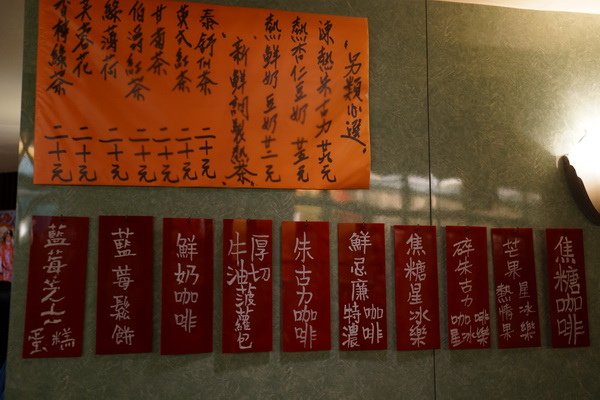 另類 選
凍熱朱古力 廿元
熱杏仁豆奶
熱鮮奶豆奶 廿二元
新鮮調製熱茶
茶 二十元
英式紅茶 二十元
甘菊茶 二十元
伯爵紅茶 二十元
綠薄荷 二十元
芙蓉花 二十元
綠茶 二十元
焦糖咖啡
芒果熱情果
星冰樂
碎朱古力
咖啡星冰樂
焦糖星冰樂
鮮忌廉特濃
咖啡
朱古力咖啡
厚切
牛油菠蘿包
鮮奶咖啡
藍莓鬆餅
藍莓芝士
蛋糕